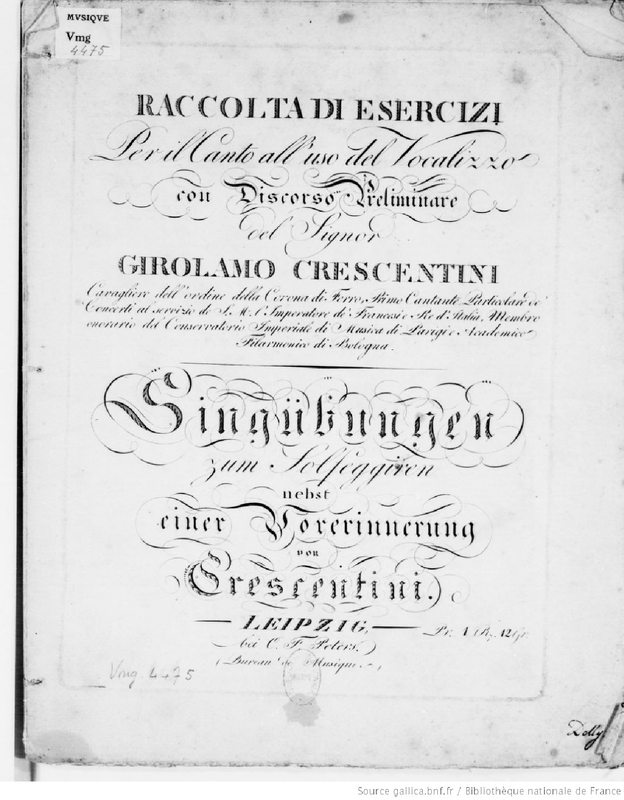 MVSIQVE
Vmg
4475
RACCOLTA DI ESERCIZI
Per il Canto all'uso del Vocalizzo
con Discorso Preliminare
del Signor
GIROLAMO CRESCENTINI
Cavagliere dell'ordine della Corona di Ferro, Primo Cantante Particolare de'
Concerti al servizio di S. M. l'Imperatore de' Francesi e Re d'Italia, Membro
onorario del Conservatorio Imperiale di Musica di Parigi e Academico
Filarmonico di Bologna.
Singübungen
zum Solfeggiren
nebst
einer Vorerinnerung
von
Crescentini.
LEIPZIG,
Pr. 1 Rt. 12 Gr.
bei C. F. Peters.
(Bureau de Musique.)
Vmg 4475
Source gallica.bnf.fr / Bibliothèque nationale de France